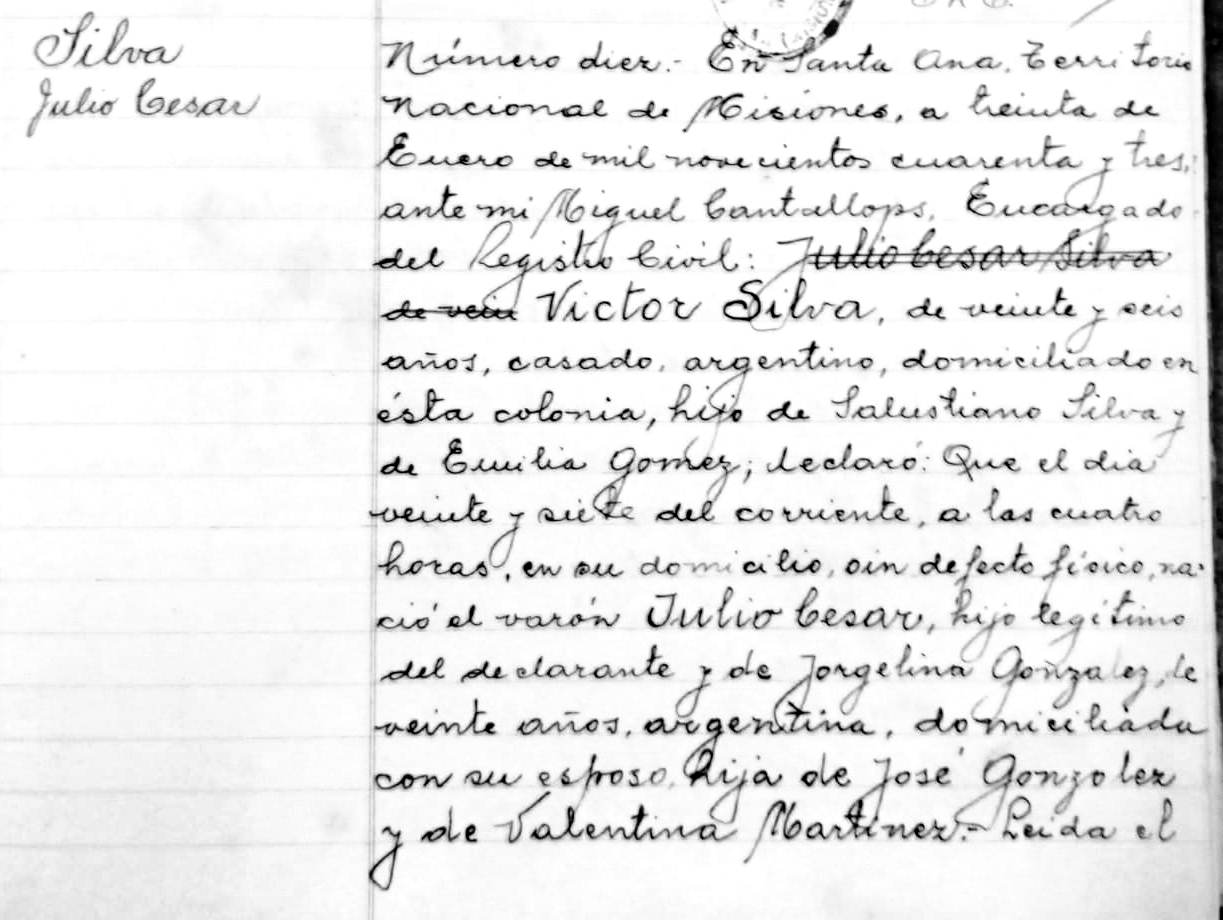 Silva
Julio Cesar
Número diez.- En Santa Ana, Territorio
Nacional de Misiones, a treinta de
Enero de mil novecientos cuarenta y tres,
ante mi Miguel Cantallops, Encargado
del Registro Civil: Julio Cesar Silva
de vein Victor Silva, de veinte y seis
años, casado, argentino, domiciliado en
ésta colonia, hijo de Salustiano Silva y
de Emilia Gomez, declaró: Que el dia
veinte y siete del corriente, a las cuatro
horas, en su domicilio, sin defecto físico, na-
ció el varón Julio Cesar, hijo legítimo
del declarante y de Jorgelina Gonzalez, de
veinte años, argentina, domiciliada
con su esposo, hija de José Gonzalez
y de Valentina Martinez.- Leida el